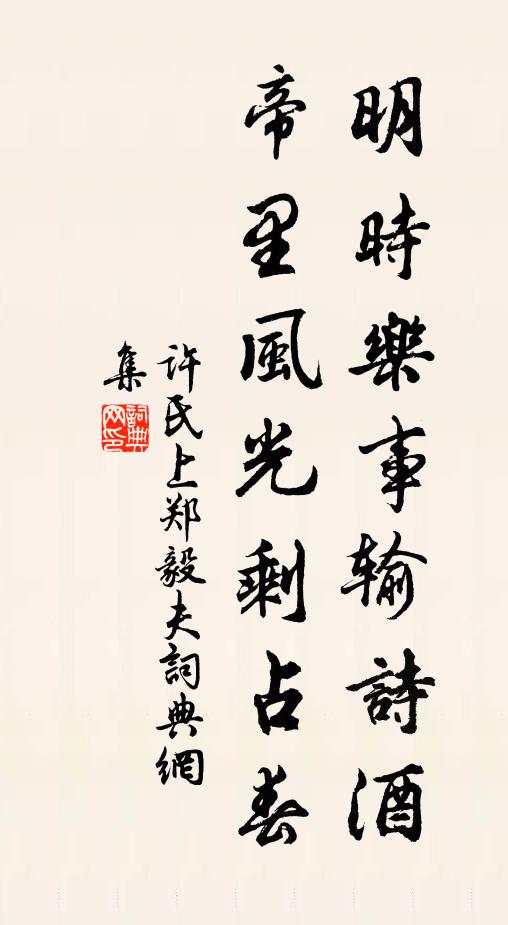 明時樂事输詩酒
帝里風光剩占春
许氏上郑毅夫詞典網
集
詞典网印